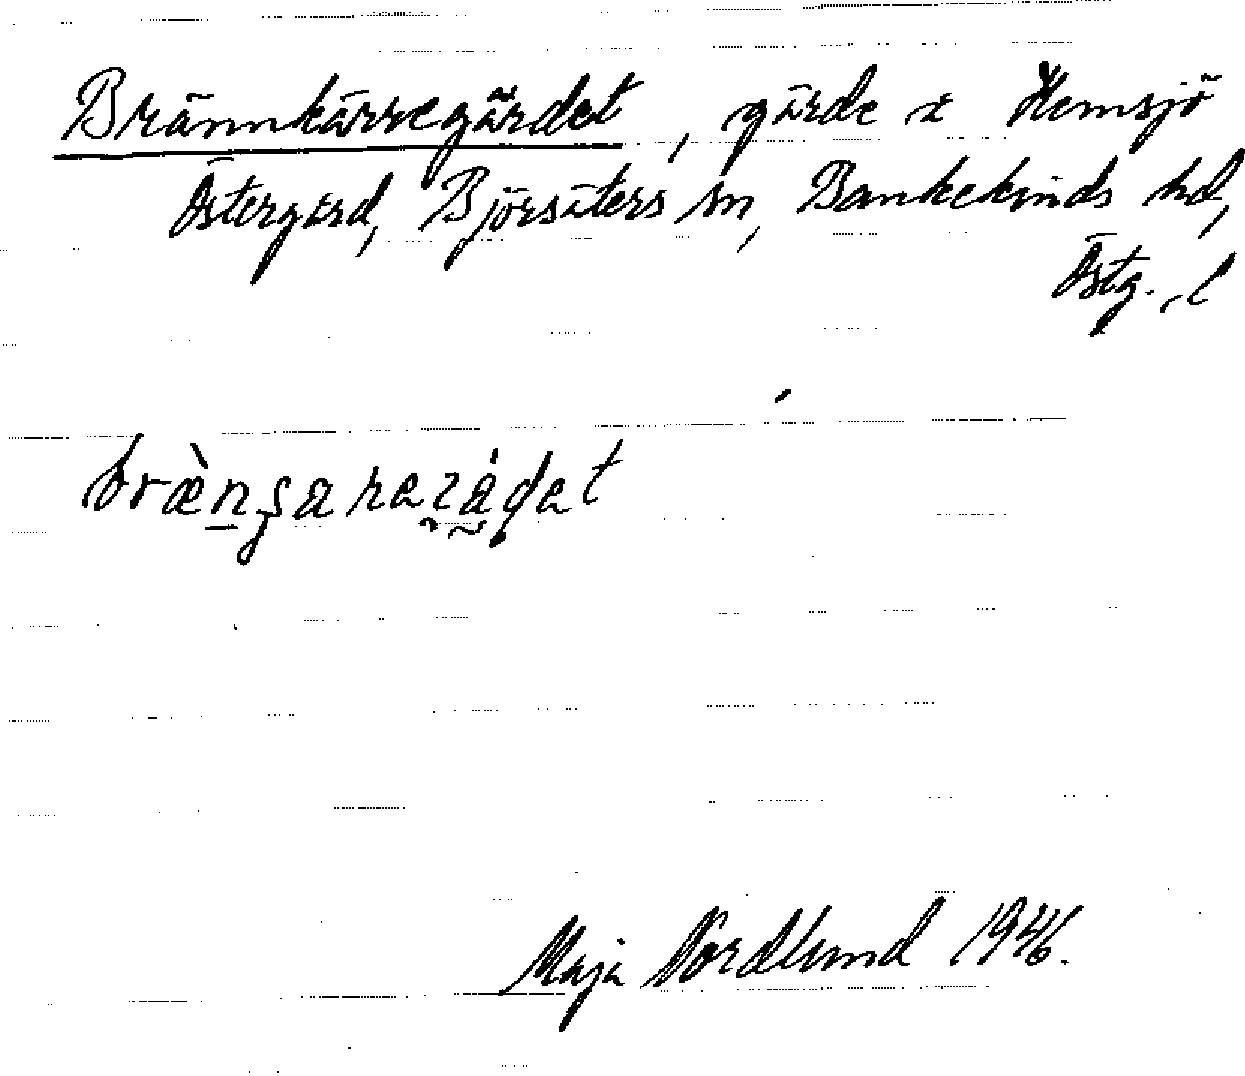 Brännkärregärdet, gärde i Hemsjö
Östergård, Björsäters sn, Bankekinds hd,
Östg. l
Maja Nordlund 1946.